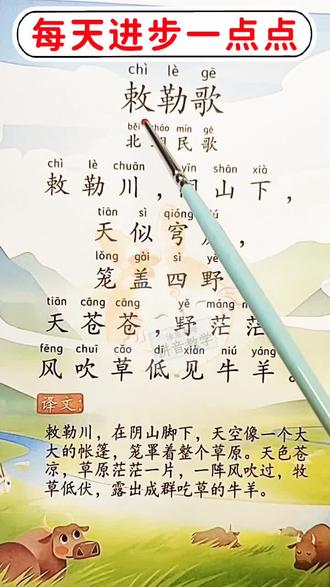 每天进步一点点
chì lè gē
敕勒歌
běi cháo mín gē
北 民歌
chì lè chuān yīn shān xià
敕勒川，山下，
tiān sì qióng
天似穹，
lǒng gài sì yě
笼盖四野
tiān cāng cāng yě máng m
天苍苍，野茫茫
fēng chuī cǎo dī xiàn niú yáng
风吹草低见牛羊。
拼音教学
译文：
敕勒川，在阴山脚下，天空像一个大
大的帐篷，笼罩着整个草原。天色苍
凉，草原茫茫一片，一阵风吹过，牧
草低伏，露出成群吃草的牛羊。